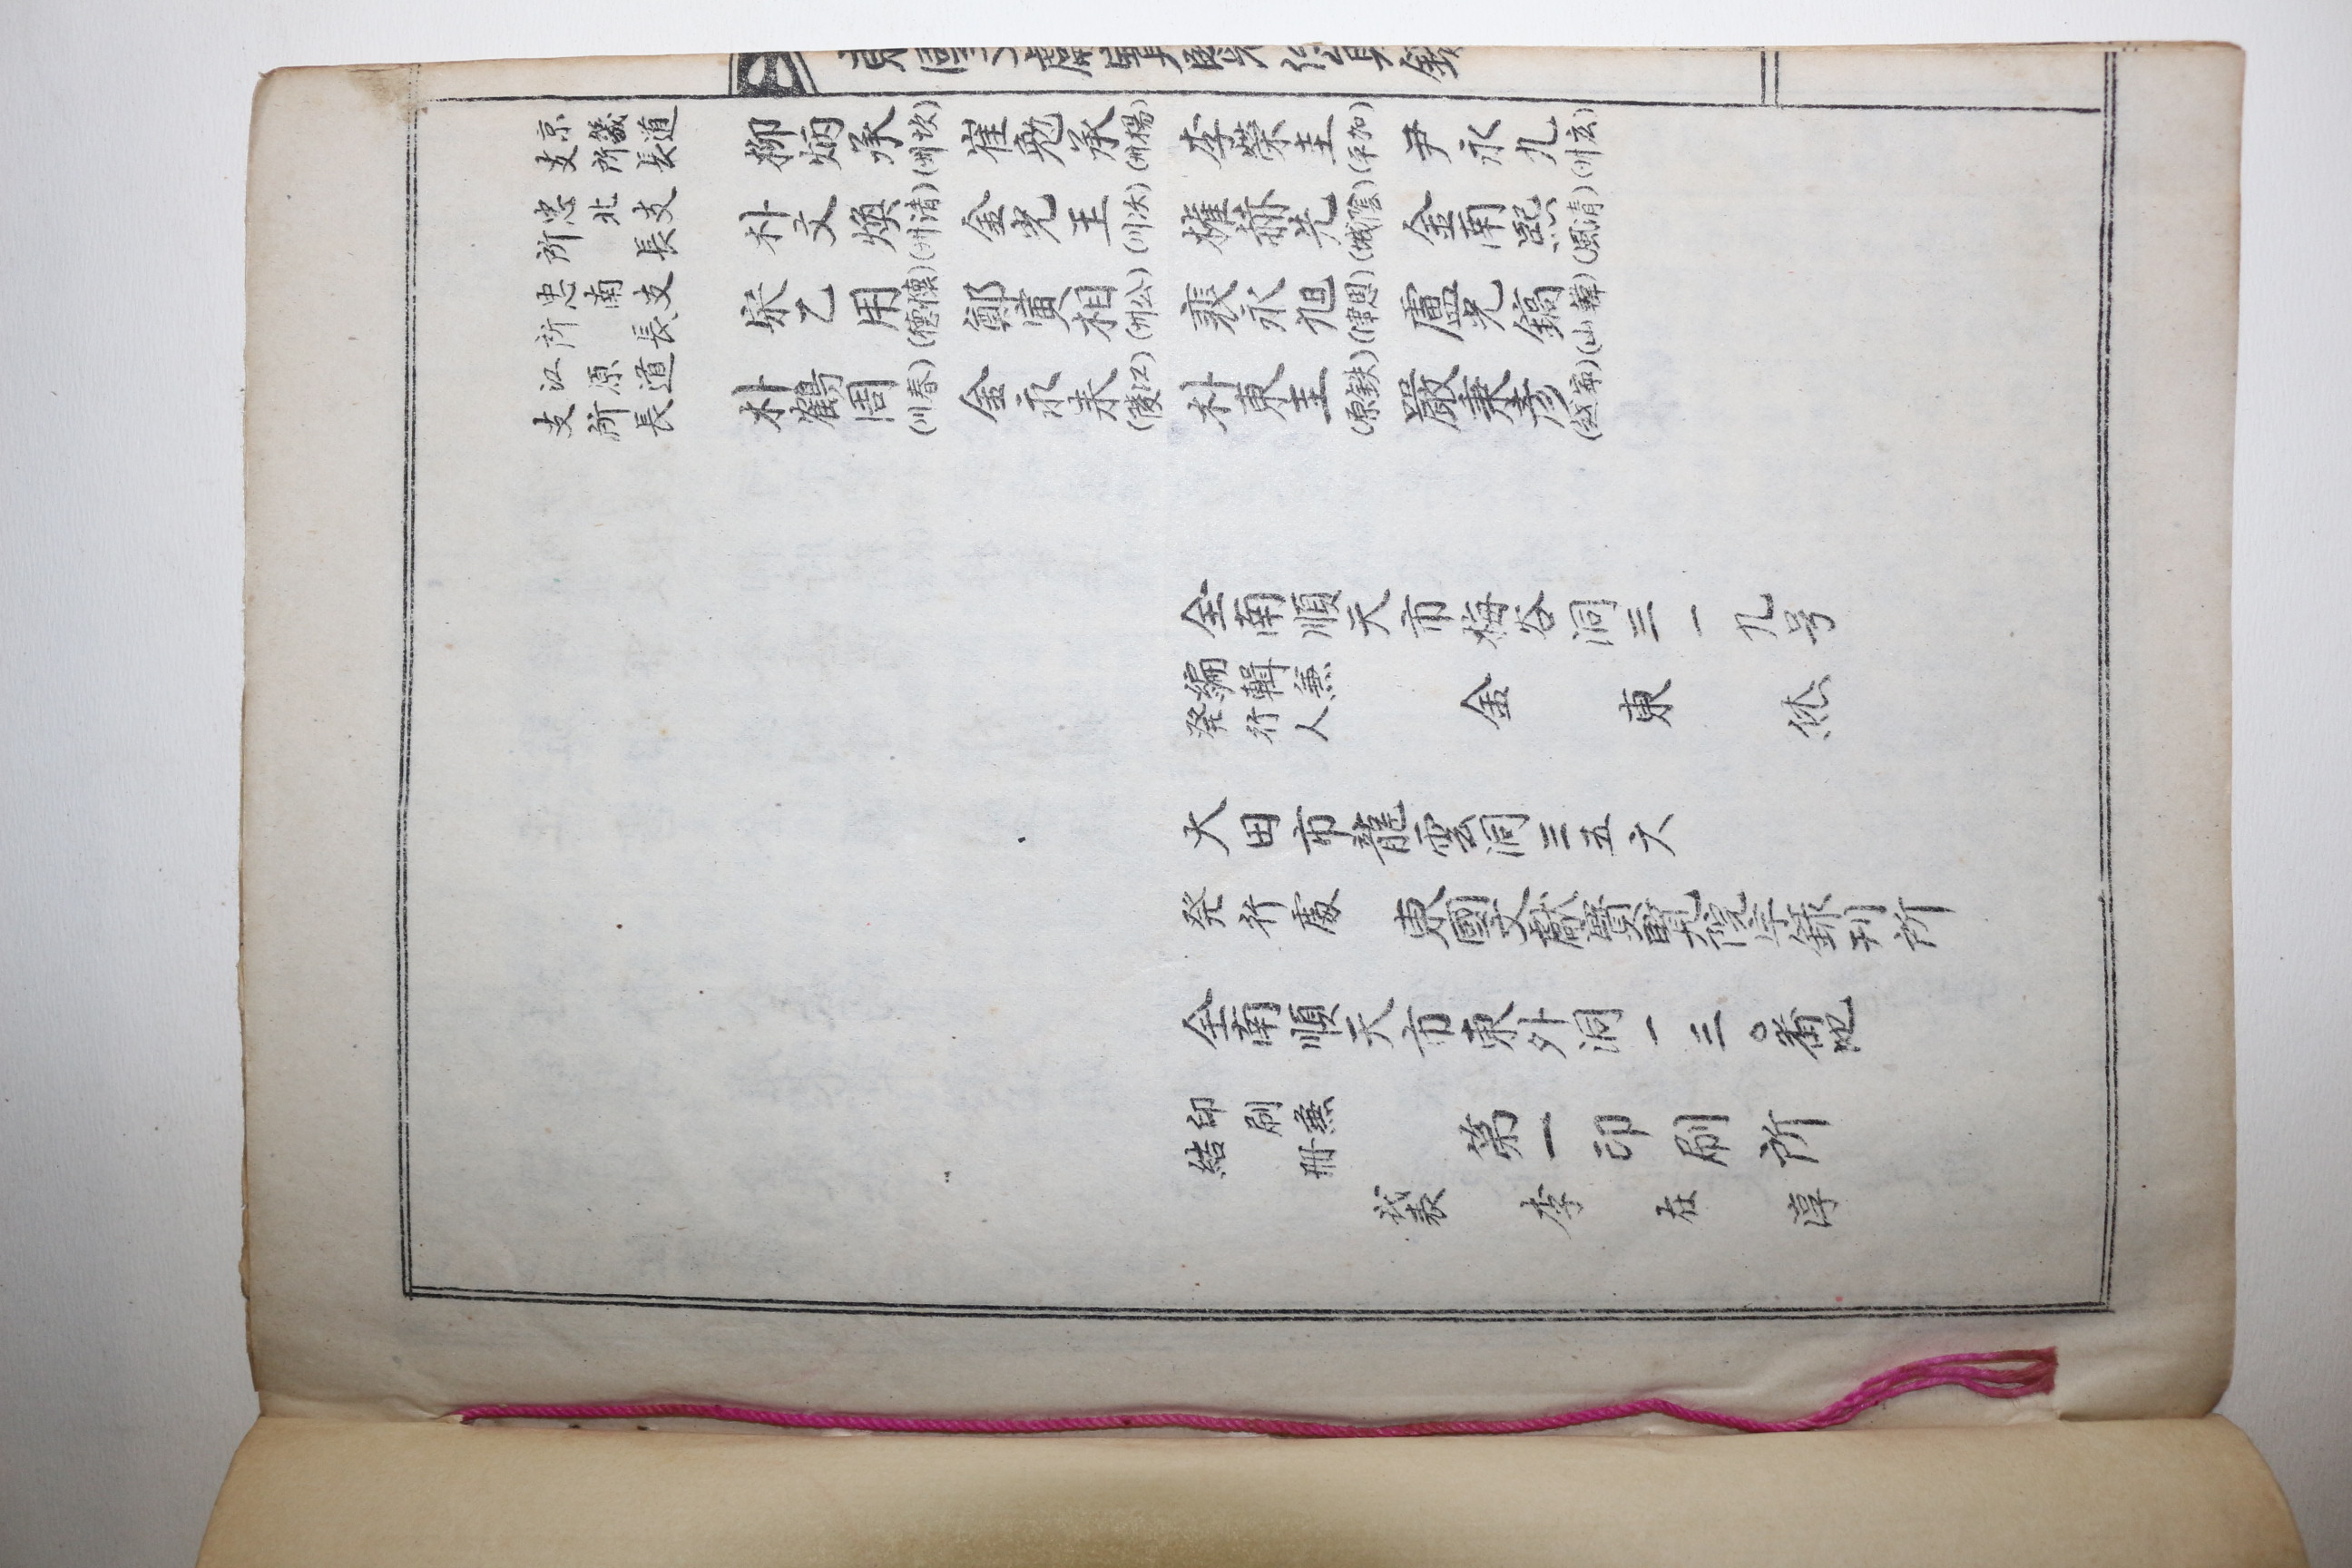 東國文獻實覽位員錄
京畿道支所長 柳炳承(坡州) 崔勉承(楊州) 李榮圭(加平) 尹永九(広州)
忠北支所長 朴文煥(清州) 金光王(沃川) 權赫先(陰城) 金南熙(清風)
忠南支所長 宋乙用(懷德) 鄭寅相(公州) 裵永旭(恩津) 盧光鎬(韓山)
江原道支所長 朴鶴周(春川) 金永来(江陵) 朴東圭(鉄原) 嚴秉彦(寧越)
全南順天市梅谷洞三一九号
編輯兼発行人 金東
大田市龍雲洞三五六
発行處 東國文獻實覽院宇錄刊所
全南順天市東外洞一三〇番地
印刷兼結冊 第一印刷所
代表 李在淳